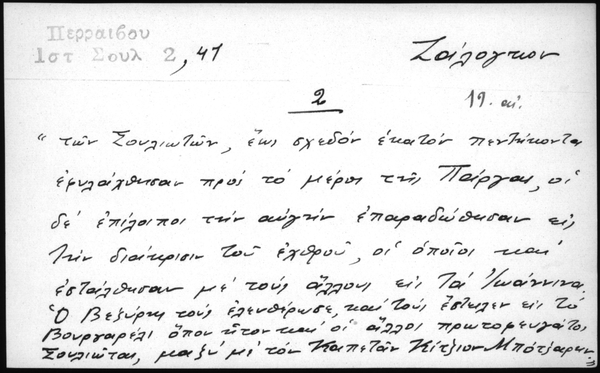 Περραιβου
1στ Σουλ 2, 41
Ζάλογγον
2
19. αἰ.
"τῶν Σουλιωτῶν, ἕως σχεδόν ἑκατόν πεντήκοντα
ἐφυλάχθησαν πρός τό μέρος τῆς Πάργας, οἱ
δέ ἐπίλοιποι τήν αὐγήν ἐπαραδώθησαν εἰς
τήν διάκρισιν τοῦ ἐχθροῦ, οἱ ὁποῖοι καί
ἐστάλθησαν μέ τούς ἄλλους εἰς τά Ἰωάννινα.
Ὁ Βεζύρης τούς ἐλευθέρωσε, καί τούς ἔστειλεν εἰς τό
Βουργαρέλι ὅπου ἦτον καί οἱ ἄλλοι πρωτοφευγάτοι
Σουλιῶται, μαζύ μέ τόν Καπετάν Κίτζιον Μπότζαρην"